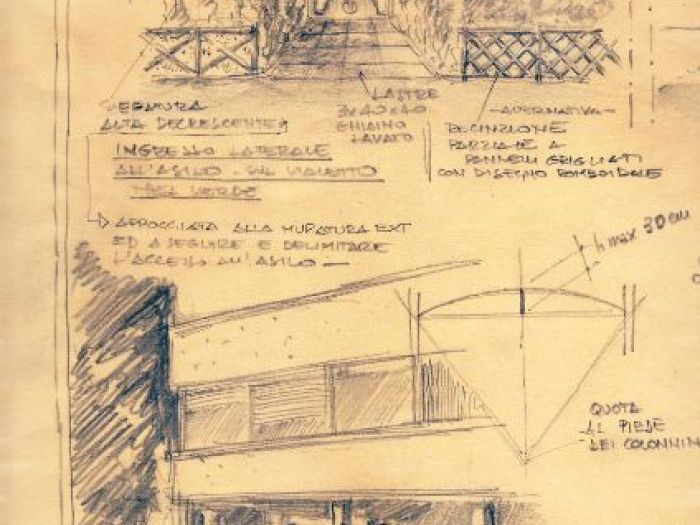 SEPATURA
ALTA DECRESCENTE
INGRESSO LATERALE
ALL'ASILO SUL VIALETTO
DEL VERDE
LASTRE
40x40
GHIAINO
LAVATO
-ALTERNATIVA-
RECINZIONE
PARZIALE A
PANNELLI GRIGLIATI
CON DISEGNO ROMBOIDALE
APPOGGIATA ALLA MURATURA EXT
ED A SEGUIRE E DELIMITARE
L'ACCESSO ALL'ASILO -
h max 30 cm
QUOTA
AL PIEDE
DEI COLONNIN